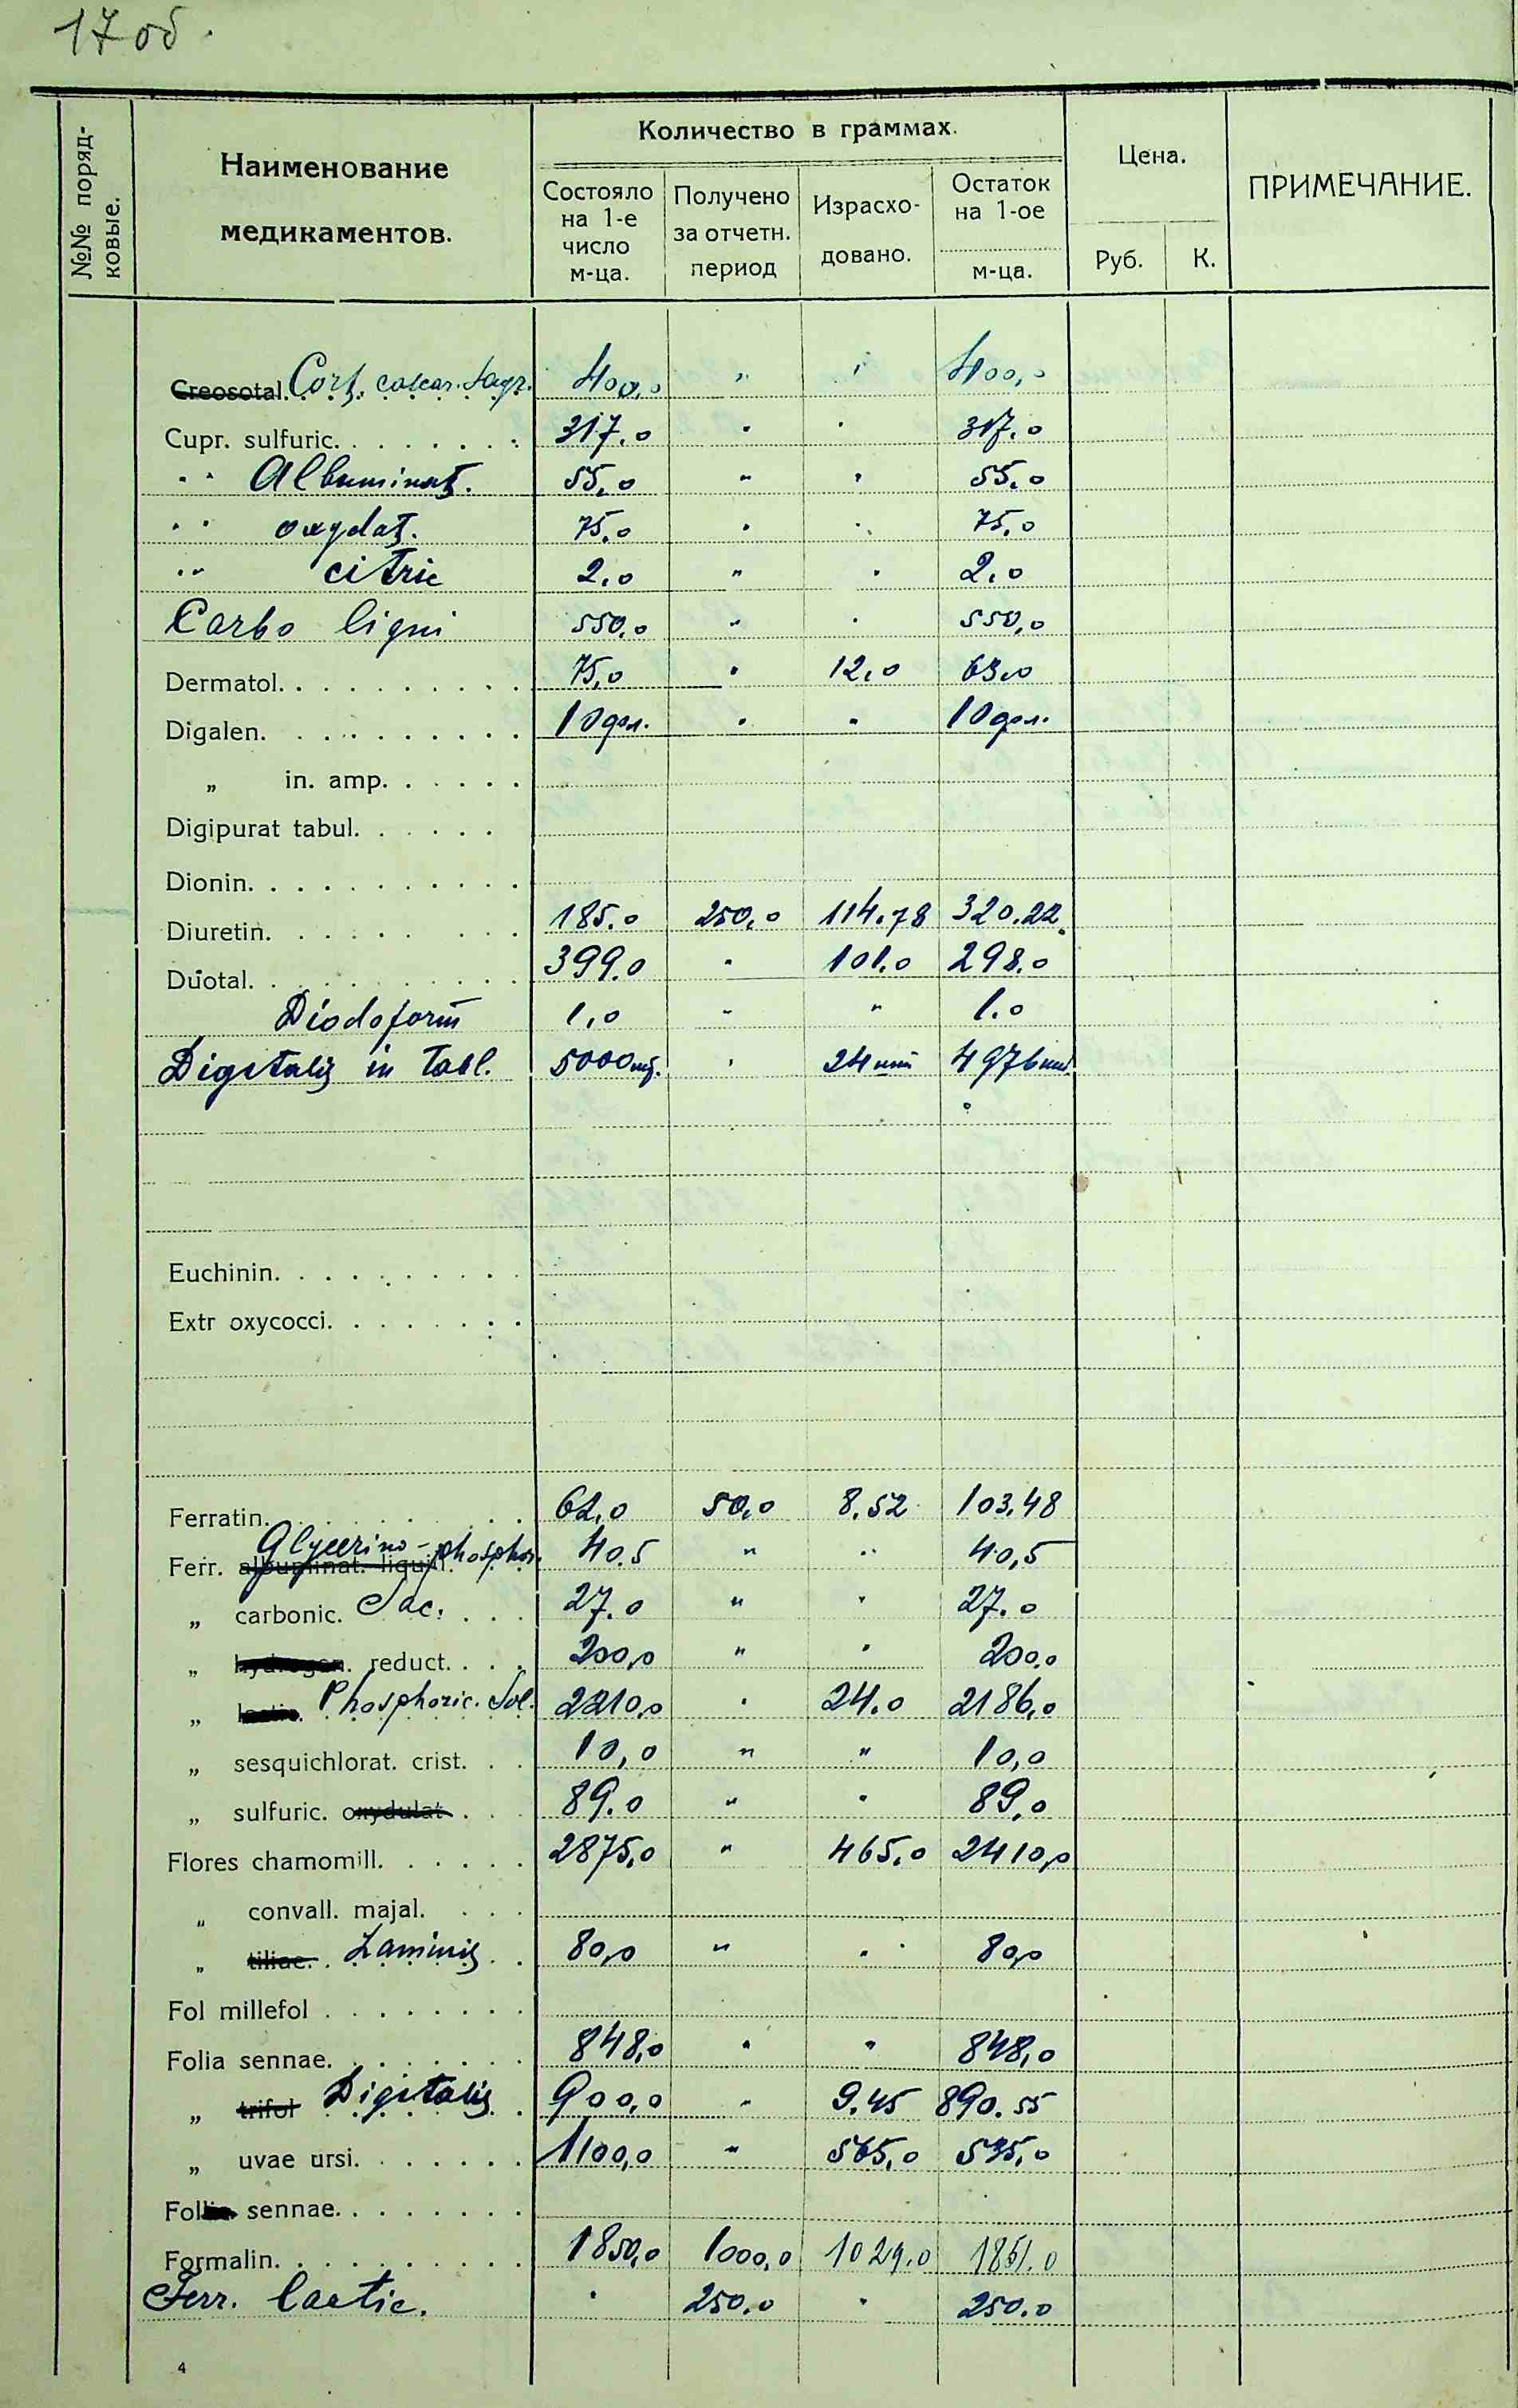 17 об.
№№ поряд-
ковые.
Наименование
медикаментов.
Количество в граммах.
Состояло
на 1-е
число
м-ца.
Получено
за отчетн.
период
Израсхо-
довано.
Остаток
на 1-ое
м-ца.
Цена.
Руб. К.
ПРИМЕЧАНИЕ.
Creosotal. Cort. cascar. Sagr. 400,0 " " 400,0
Cupr. sulfuric. . . . . . . . 317.0 " " 317.0
" " Albuminat. 55,0 " " 55.0
" " oxydat. 75.0 " " 75.0
" " citric 2.0 " " 2.0
Carbo ligni 550,0 " " 550,0
Dermatol. . . . . . . . . . 75,0 " 12,0 63,0
Digalen. . . . . . . . . . 10 фл. " " 10 фл.
„ in. amp. . . . . .
Digipurat tabul. . . . . .
Dionin. . . . . . . . . . .
Diuretin. . . . . . . . . 185.0 250,0 114.78 320.22
Duotal. . . . . . . . . . . 399.0 " 101.0 298.0
Diodoform 1,0 " " 1.0
Digitalis in tabl. 5000 шт. " 24 шт 4976 шт.
Euchinin. . . . . . . . . .
Extr oxycocci. . . . . . . .
Ferratin. . . . . . . . . . 62,0 50,0 8.52 103.48
Glycerino-phosphor.
Ferr. albuminat. liquid. 40.5 " " 40,5
„ carbonic. Sac. . . . 27.0 " " 27.0
„ hydrogen. reduct. . . . 200,0 " " 200.0
„ lactic. Phosphoric. Sol. 2210,0 " 24.0 2186,0
„ sesquichlorat. crist. . . 10,0 " " 10,0
„ sulfuric. oxydulat . . . 89.0 " " 89,0
Flores chamomill. . . . . . 2875,0 " 465,0 2410,0
„ convall. majal. . . .
„ tiliae. . Laminis . . 80,0 " " 80,0
Fol millefol . . . . . . . .
Folia sennae. . . . . . . . 848,0 " " 848,0
„ trifol Digitalis . 900,0 " 9.45 890.55
„ uvae ursi. . . . . . . 1100,0 " 565,0 535,0
Follic. sennae. . . . . . . .
Formalin. . . . . . . . . . 1850,0 1000,0 1029.0 1851.0
Ferr. lactic. " 250.0 " 250.0
4